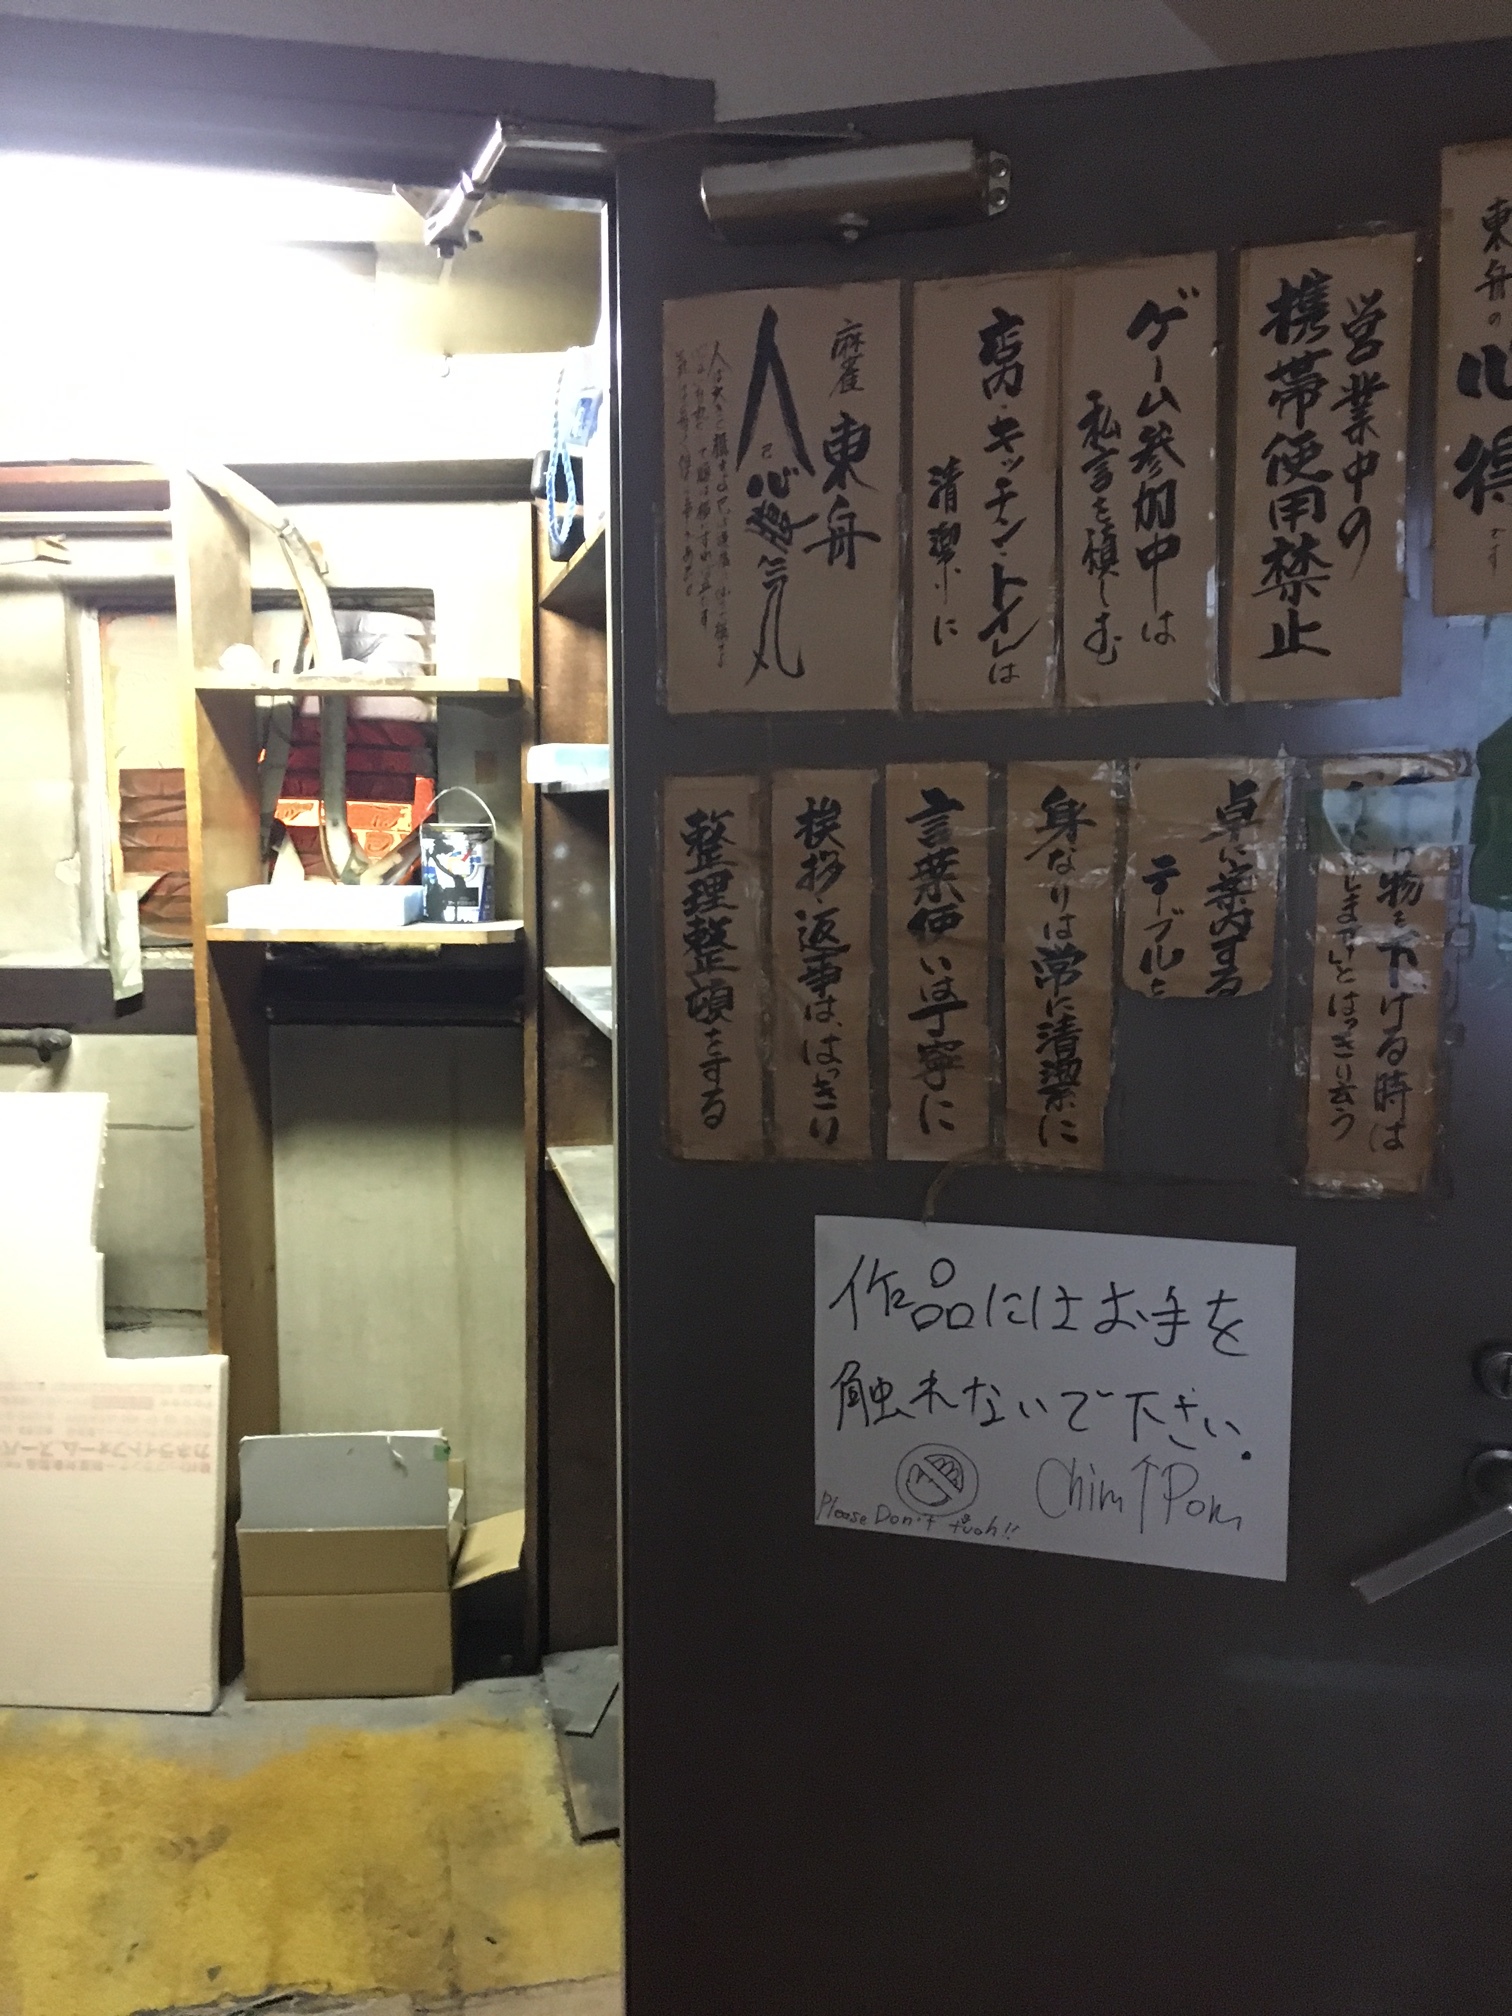 東舟の
心得
です
営業中の
携帯使用禁止
ゲーム参加中は
私言を慎しむ
店内・キッチン・トイレは
清潔に
麻雀 東舟
人
丸
物を下げる時は
しますといとはっきり云う
卓に案内する
テーブルを
身なりは常に清潔に
言葉使いは丁寧に
挨拶、返事は、はっきり
整理整頓をする
作品にはお手を
触れないで下さい.
Chim↑Pom
Please Don't tuoh!!
カネライトフォームスーパー